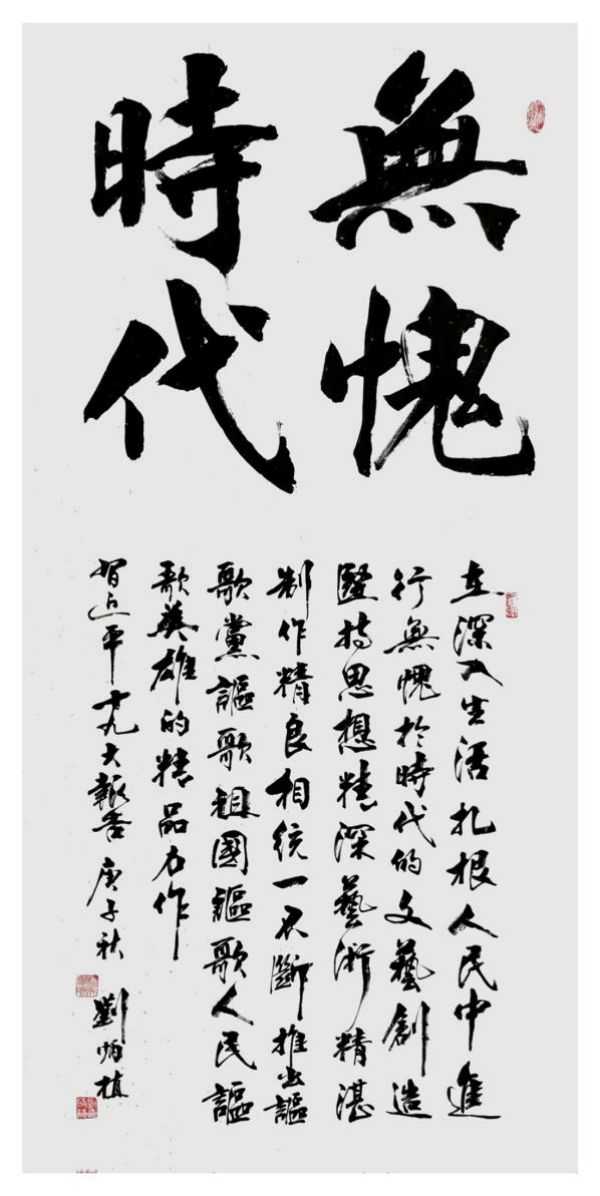 無愧
時代
在深入生活扎根人民中進
行無愧於時代的文藝創造
堅持思想精深藝術精湛
制作精良相統一不斷推出謳
歌黨謳歌祖國謳歌人民謳
歌英雄的精品力作
習近平十九大報告 庚子秋
劉 植